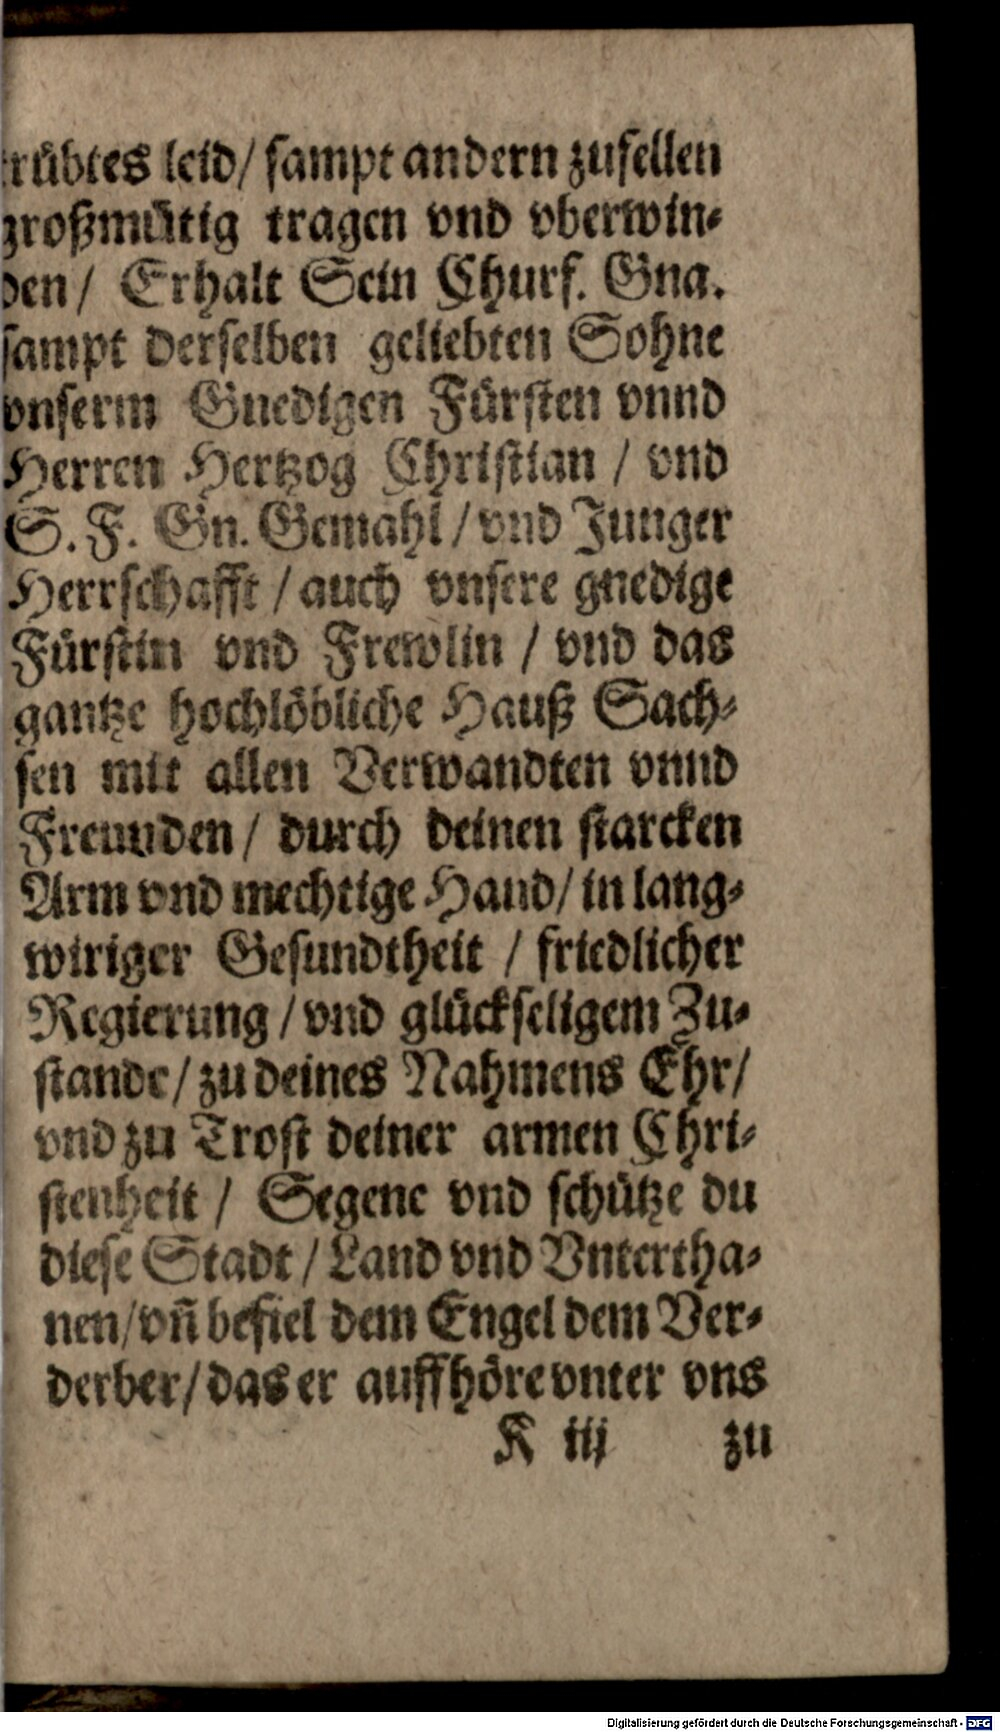 trübtes leid/ sampt andern zufellen
großmütig tragen vnd vberwin-
den/ Erhalt Sein Churf. Gna.
sampt derselben geliebten Sohne
vnserm Gnedigen Fürsten vnnd
Herren Hertzog Christian / vnd
S. F. Gn. Gemahl / vnd Junger
Herrschafft / auch vnsere gnedige
Fürstin vnd Frewlin / vnd das
gantze hochlöbliche Hauß Sach-
sen mit allen Verwandten vnnd
Freunden / durch deinen starcken
Arm vnd mechtige Hand/ in lang-
wiriger Gesundtheit / friedlicher
Regierung / vnd glückseligem Zu-
stande/ zu deines Nahmens Ehr/
vnd zu Trost deiner armen Chri-
stenheit / Segene vnd schütze du
diese Stadt / Land vnd Vntertha-
nen/ vñ befiel dem Engel dem Ver-
derber/ das er auffhöre vnter vns
K iij zu
Digitalisierung gefördert durch die Deutsche Forschungsgemeinschaft - DFG